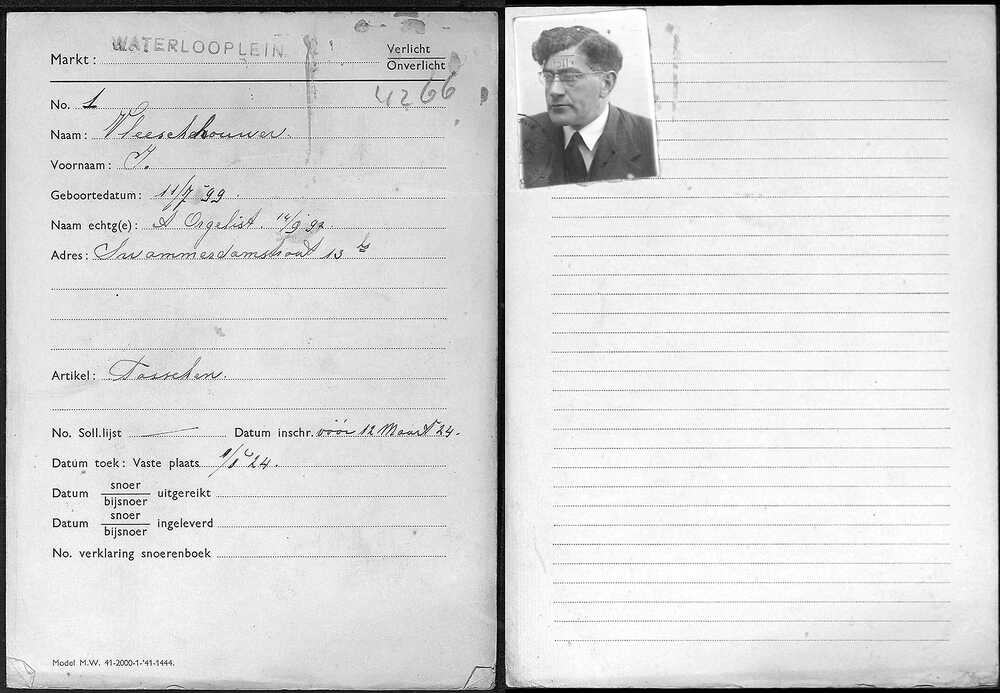 WATERLOOPLEIN
Markt:
Verlicht
Onverlicht
4266
No. 1
Naam: Vleeschdrouwer
Voornaam: I.
Geboortedatum: 11/7 '99
Naam echtg(e): A Orgelist. 14/9 92
Adres: Swammerdamstraat 13 hs
Artikel: Tasschen.
No. Soll.lijst — Datum inschr. vóór 12 Maart 24.
Datum toek: Vaste plaats 24.
Datum snoer/bijsnoer uitgereikt
Datum snoer/bijsnoer ingeleverd
No. verklaring snoerenboek
Model M.W. 41-2000-1-'41-1444.